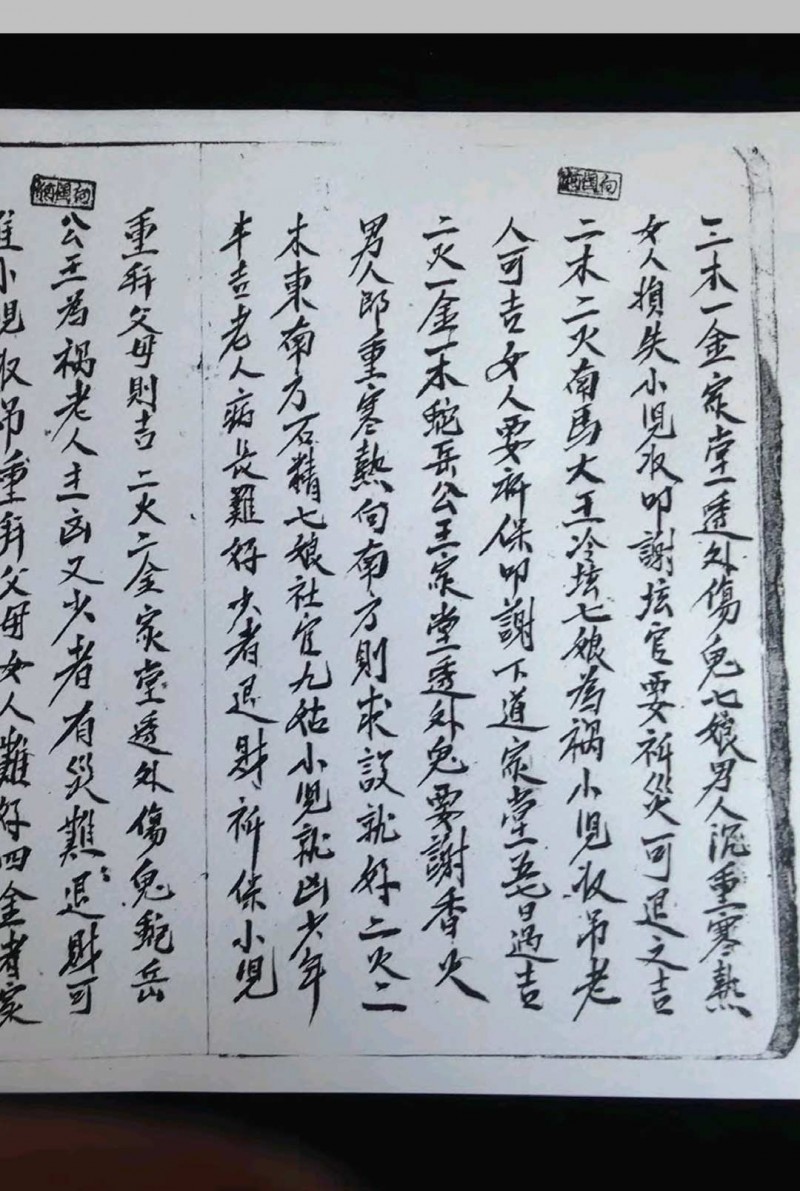 三木一金家堂透外傷鬼七娘男人沉重寒熱
女人損失小児収叩謝坛官要祈災可退之吉
二木二火南馬大王冷坛七娘為禍小児収吊老
人可吉女人要祈保叩謝下道家堂五七日過吉
二火一金一木 岳公王家堂透外鬼要謝香火
男人郎重寒熱向南方則求設就好二火二
木東南方石精七娘社官九姑小児就凶少年
半吉老人病長難好少者退財祈保小児
重 父母則吉二火二金家堂透外傷鬼 岳
公王為禍老人主凶又少者有災難退財可
小児収吊重 父母女人難好四金者家